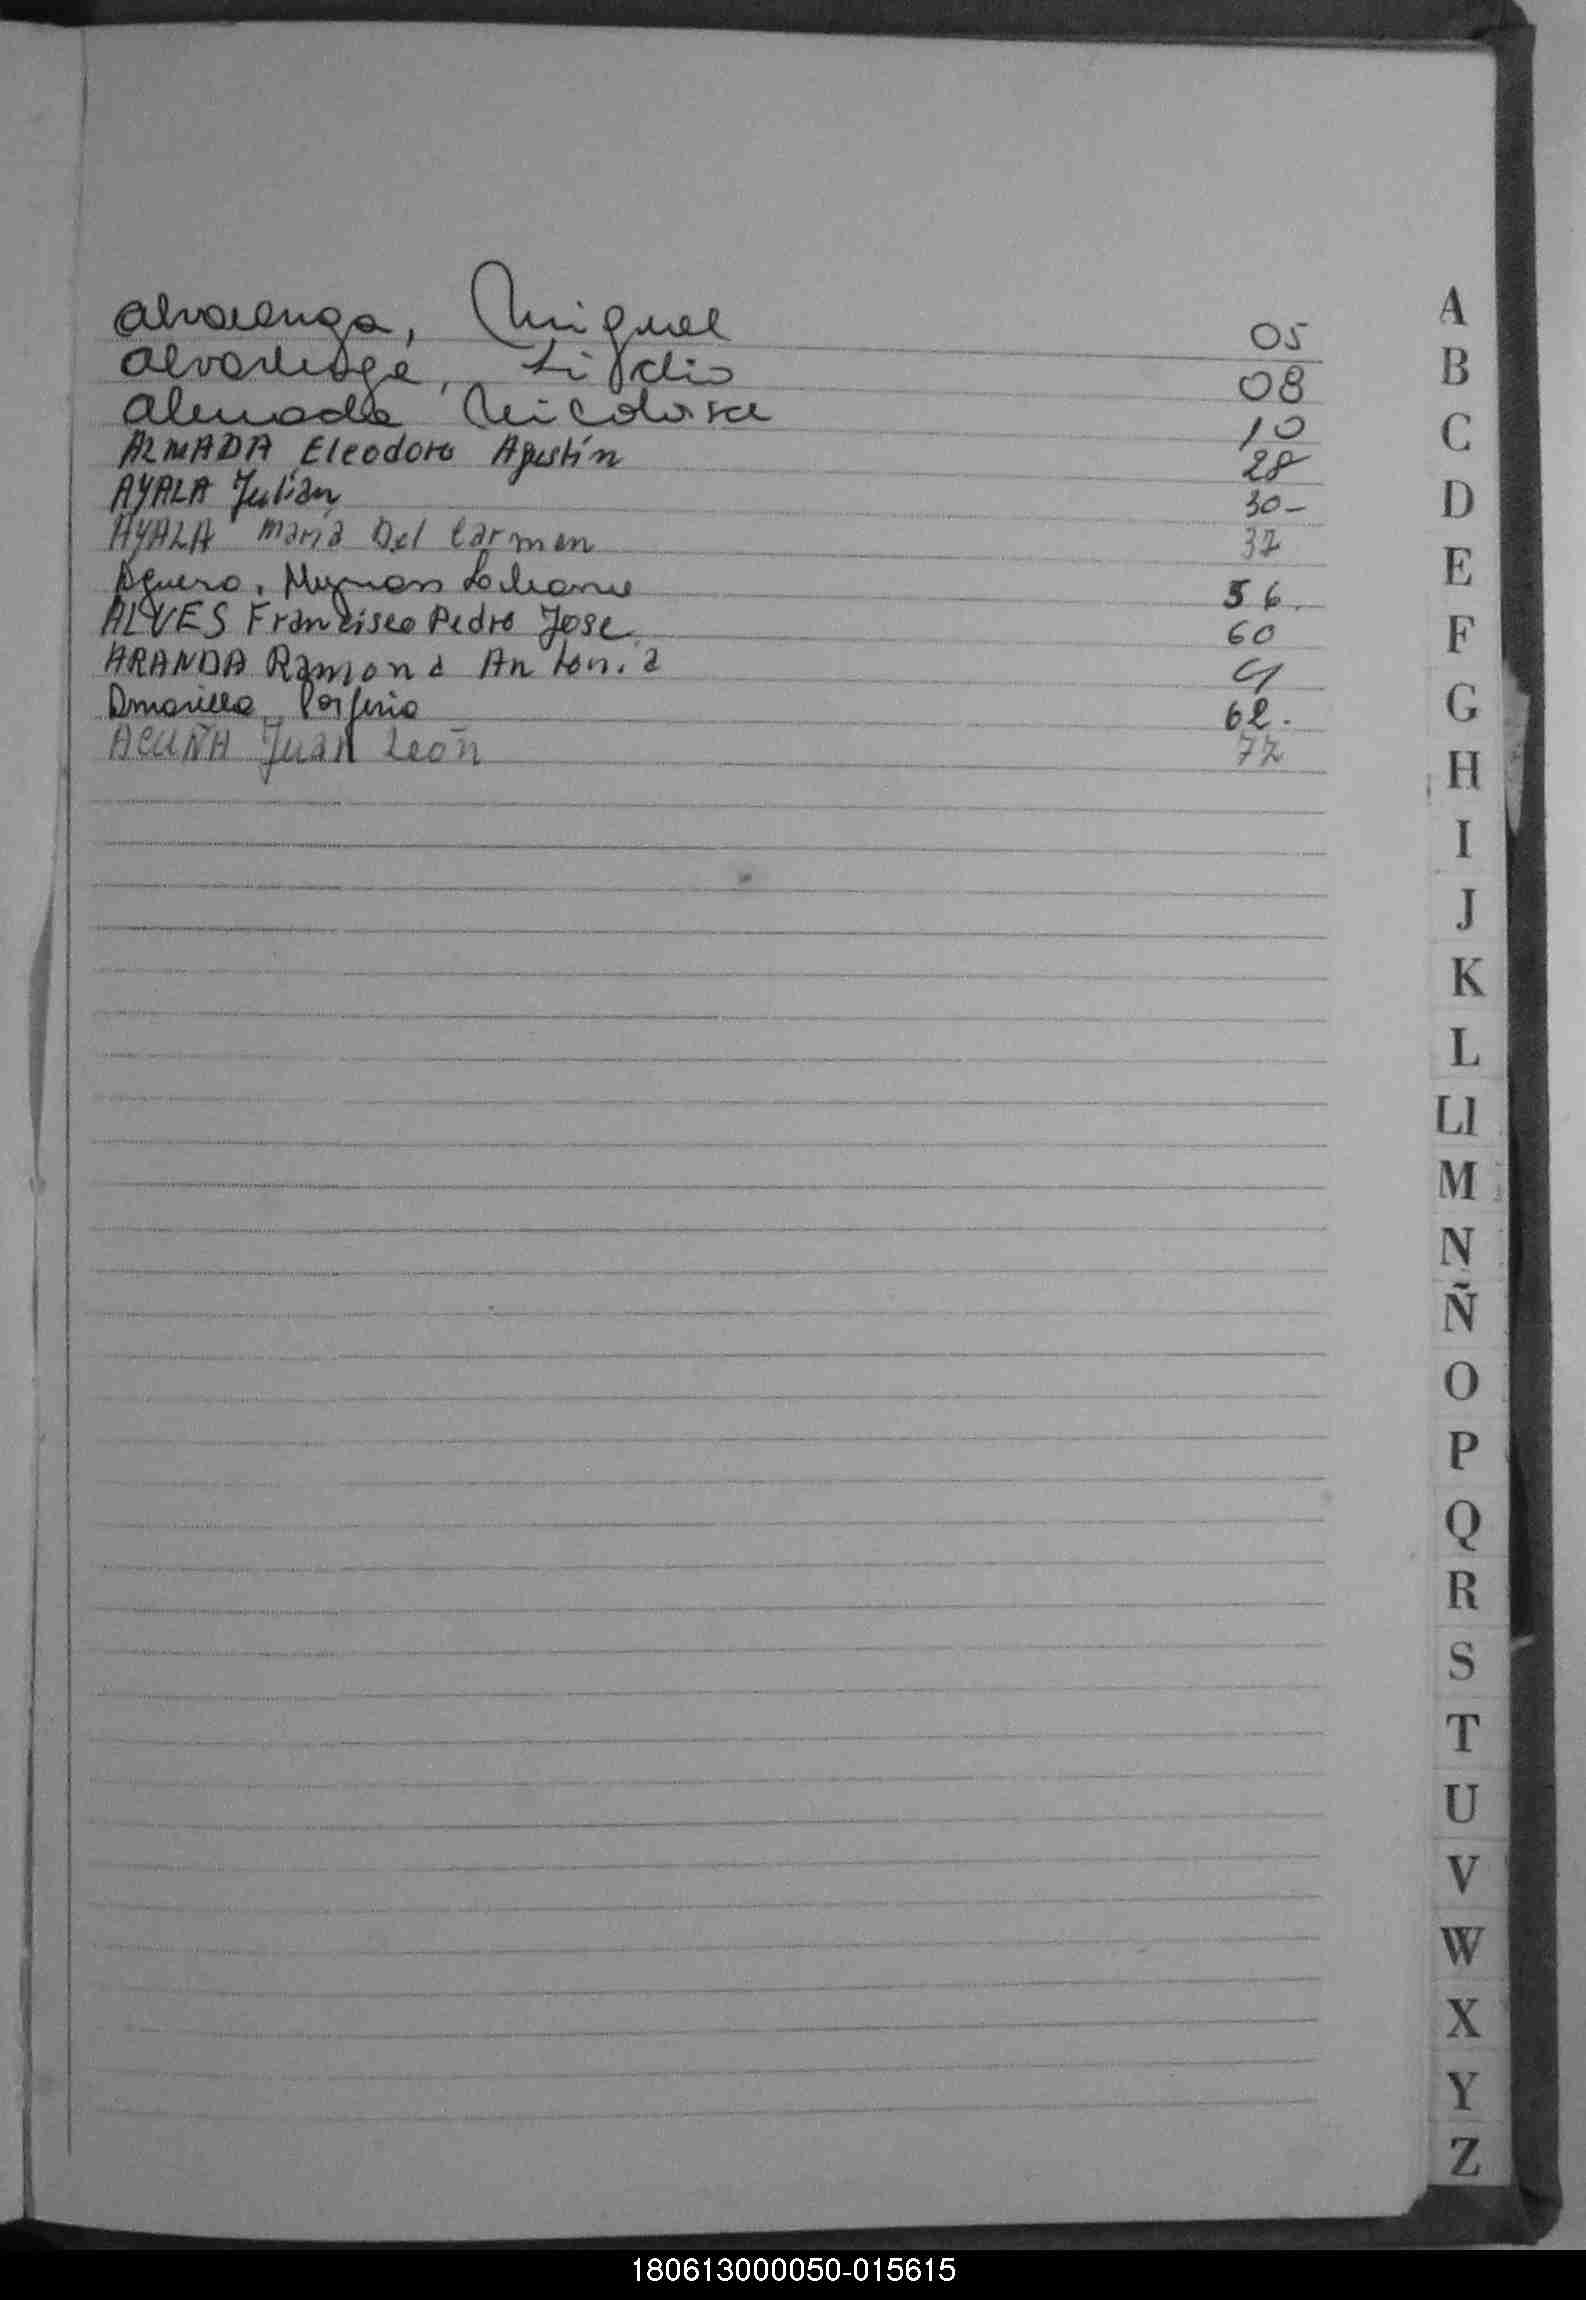 Alvarenga, Miguel 05
Alvarenga, Lidio 08
Almada Nicolasa 10
ALMADA Eleodoro Agustín 28
AYALA Julián 30-
AYALA María Del Carmen 37
Aguero, 56.
ALVES Francisco Pedro Jose 60
ARANDA Ramona Antonia
Amarilla, Porfirio 62.
ACUÑA Juan León 77
A
B
C
D
E
F
G
H
I
J
K
L
Ll
M
N
Ñ
O
P
Q
R
S
T
U
V
W
X
Y
Z
180613000050-015615